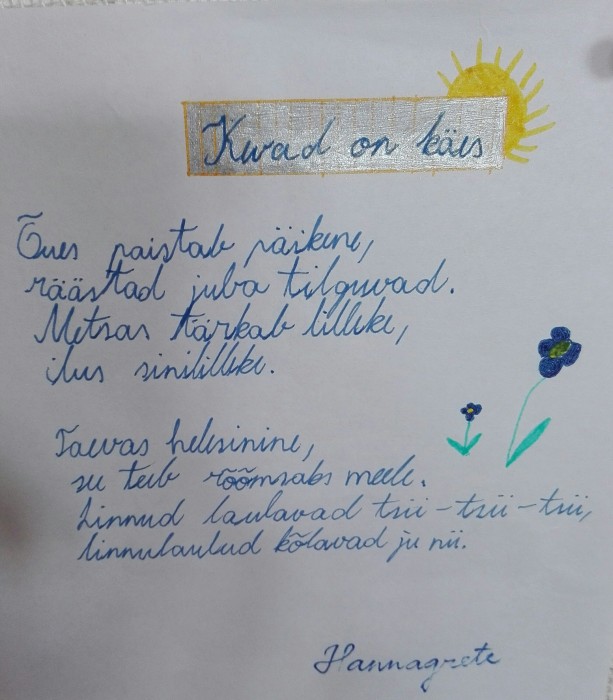 Kevad on käes
Õues paistab päikene,
räästad juba tilguvad.
Metsas tärkab lilleke,
ilus sinililleke.
Taevas helesinine,
see teeb rõõmsaks meele.
Linnud laulavad tsii-tsii-tsii,
linnulaulud kõlavad ju nii.
Hannagrete